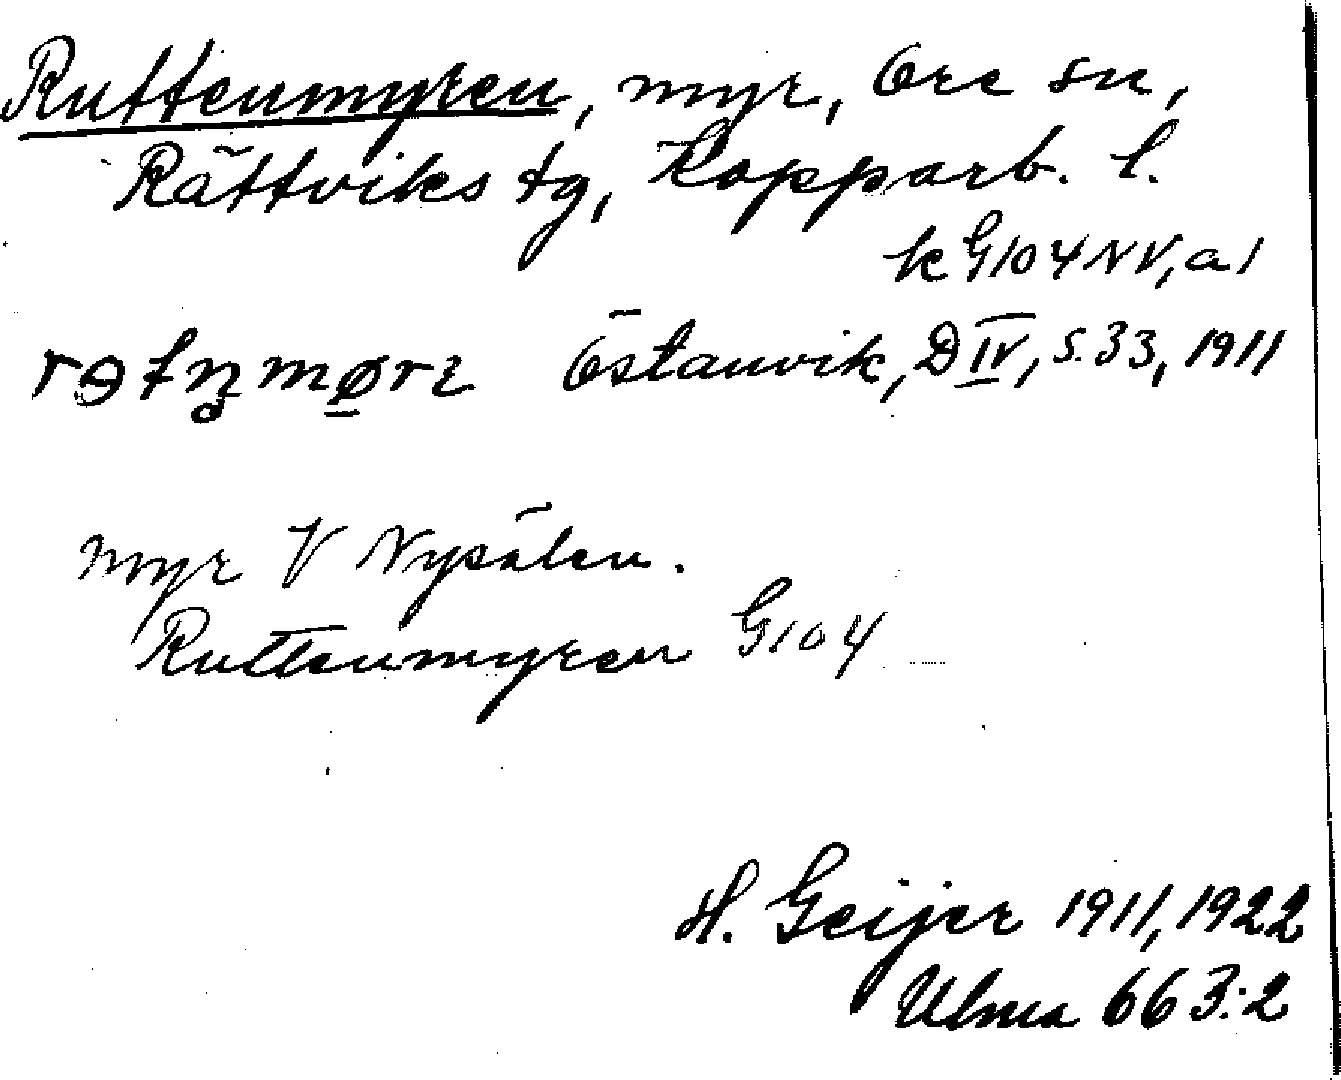 Ruttenmyren, myr, Ore sn,
Rättviks tg, Kopparb. l.
k G104NV, a1
Östanvik, D IV, s. 33, 1911
myr V Nysälen.
Ruttenmyren G104
H. Geijer 1911, 1922
Ulma 663:2